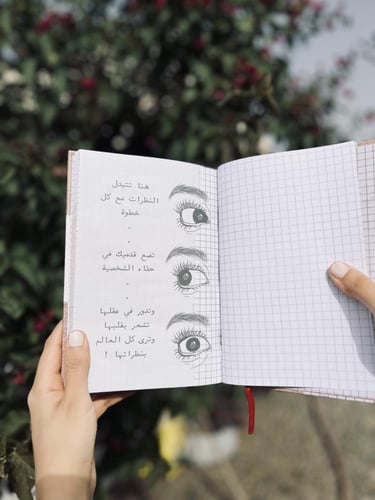 هنا تتبدل
النظرات مع كل
خطوة
.
.
تضع قدميك في
حذاء الشخصية
.
.
وتدور في عقلها
تشعر بقلبها
وترى كل العالم
بنظراتها !